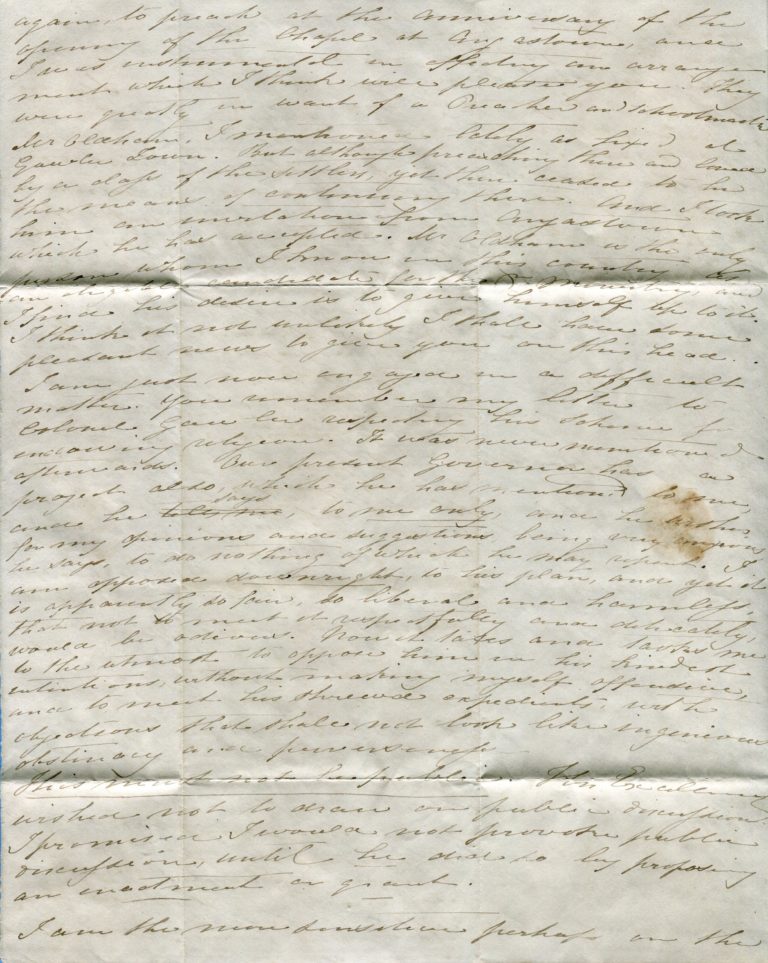 again, to preach at the anniversary of the
opening of the Chapel at Angastown, and
I was instrumental in effecting an arrange
ment which I think will please you. They
were greatly in want of a Preacher and Schoolmaster
Mr Oldham, I mentioned lately as fixed at
Gawler Town. But although preaching there and loved
by a class of the settlers, yet there ceased to be
the means of continuing there. And I took
him an invitation from Angastown
which he has accepted. Mr Oldham is the only
person whom I know in this country as
an eligible candidate for the ministry, and
I find his desire is to give himself up to it.
I think it not unlikely I shall have some
pleasant news to give you on this head.
I am just now engaged in a difficult
matter. You remember my letter to
Colonel Gawler respecting his scheme for
endowing religion. It was never mentioned
afterwards. Our present Governor has a
project also, which he has mentioned to me,
and he says to me only, and he wishes
for my opinions and suggestions being very anxious
he says, to do nothing of which he may repent. I
am opposed downright, to his plan, and yet it
is apparently so fair, so liberal and harmless,
that not to meet it respectfully and delicately,
would be odious. Now it taxes and tasks me
to the utmost to oppose him in his kindest
intentions, without making myself offensive,
and to meet his shrewd expedients, with
objections that shall not look like ingenious
obstinacy and perverseness.
This must not be public. His Excellency
wished not to draw on public discussion.
I promised I would not provoke public
discussion, until he did so by proposing
an enactment or grant.
I am the more sensitive perhaps on the